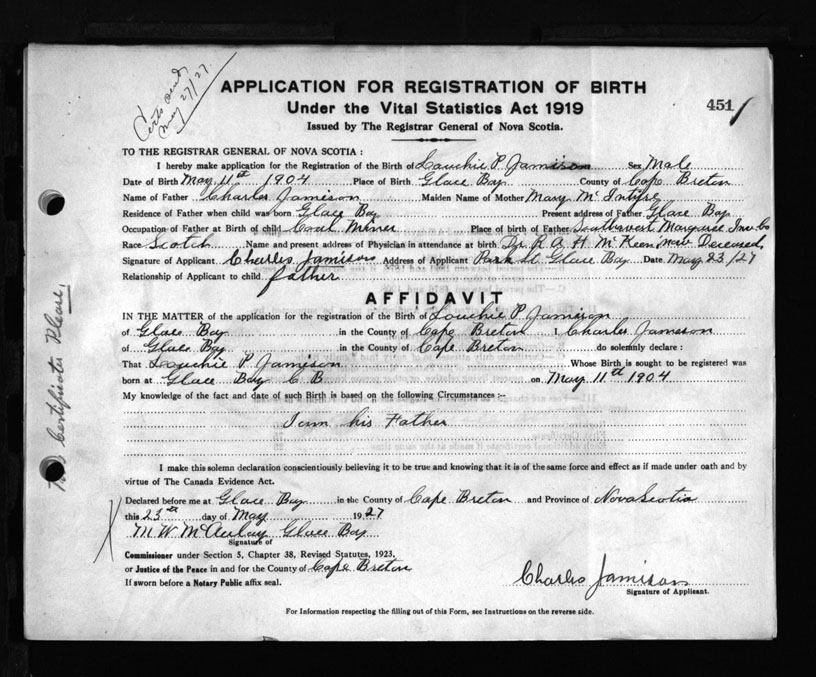 Certs send
May 27/27.
APPLICATION FOR REGISTRATION OF BIRTH
Under the Vital Statistics Act 1919
451
Issued by The Registrar General of Nova Scotia.
TO THE REGISTRAR GENERAL OF NOVA SCOTIA :
I hereby make application for the Registration of the Birth of Louchie P. Jamieson Sex Male
Date of Birth May 11th 1904 Place of Birth Glace Bay County of Cape Breton
Name of Father Charles Jamieson Maiden Name of Mother Mary McIntyre
Residence of Father when child was born Glace Bay Present address of Father Glace Bay
Occupation of Father at Birth of child Coal Miner Place of birth of Father Southwest Margaree Inv Co
Race Scotch Name and present address of Physician in attendance at birth Dr. R. A. H. McKeen now Deceased,
Signature of Applicant Charles Jamison Address of Applicant Park St Glace Bay Date May 23/27
Relationship of Applicant to child father
AFFIDAVIT
IN THE MATTER of the application for the registration of the Birth of Louchie P. Jamieson
of Glace Bay in the County of Cape Breton I Charles Jameson
of Glace Bay in the County of Cape Breton do solemnly declare :
That Louchie P Jamieson Whose Birth is sought to be registered was
born at Glace Bay C B on May 11th 1904
My knowledge of the fact and date of such Birth is based on the following Circumstances :-
I am his Father
I make this solemn declaration conscientiously believing it to be true and knowing that it is of the same force and effect as if made under oath and by
virtue of The Canada Evidence Act.
Declared before me at Glace Bay in the County of Cape Breton and Province of Nova Scotia
this 23rd day of May 1927
M. W. McAulay Glace Bay
Signature of
Commissioner under Section 5, Chapter 38, Revised Statutes, 1923,
or Justice of the Peace in and for the County of Cape Breton
If sworn before a Notary Public affix seal.
Charles Jamison
Signature of Applicant.
For Information respecting the filling out of this Form, see Instructions on the reverse side.
Certificates Please,